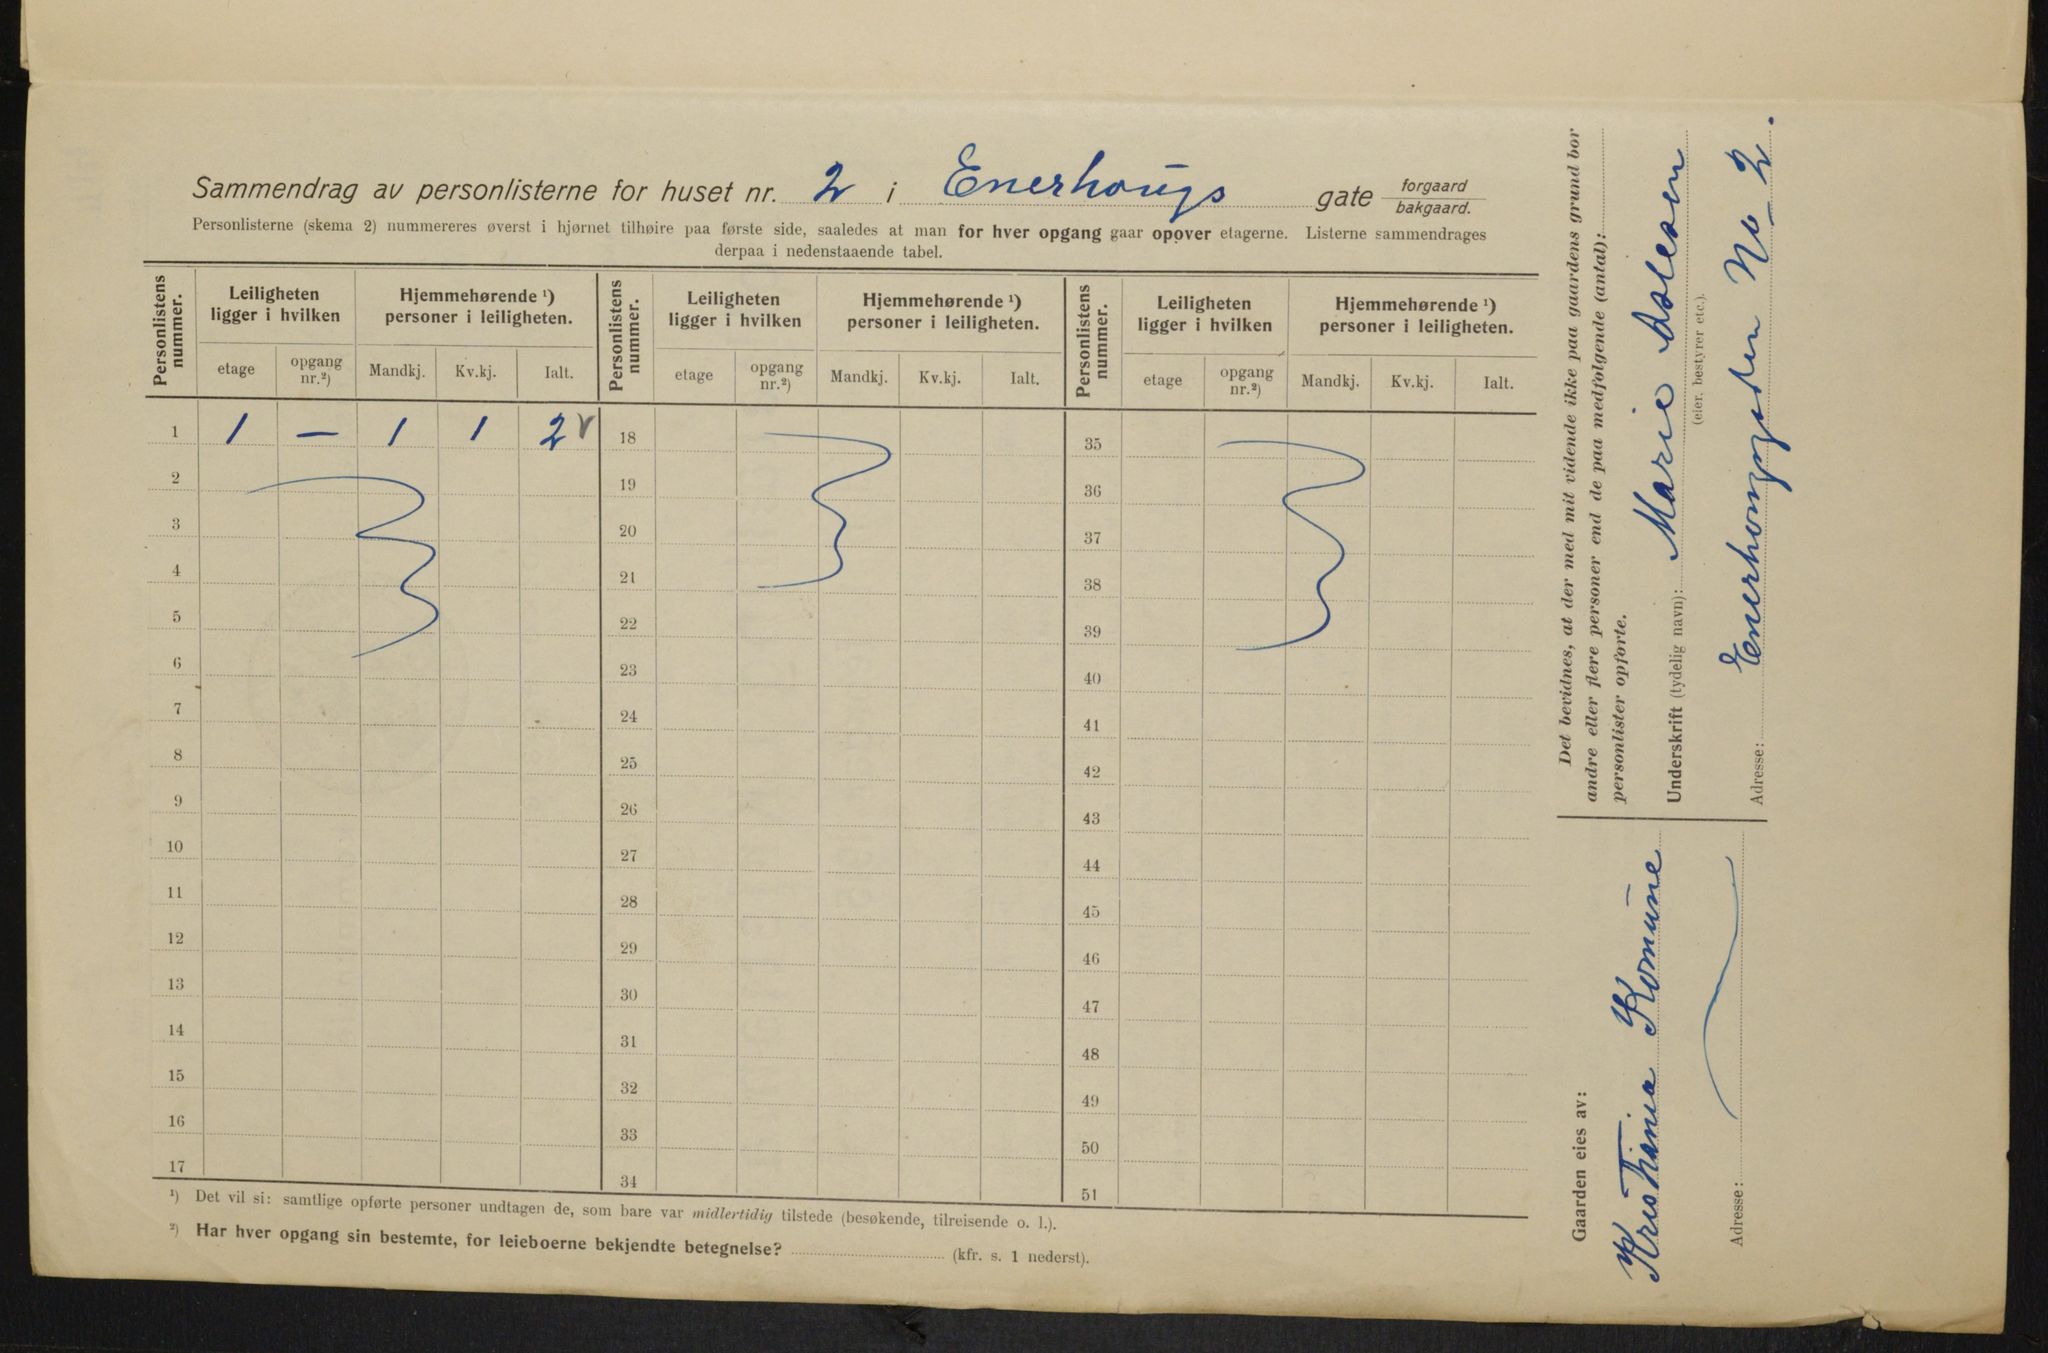 Sammendrag av personlisterne for huset nr. 2 i Enerhougs gate forgaard bakgaard.
Personlisterne (skema 2) nummereres øverst i hjørnet tilhøire paa første side, saaledes at man for hver opgang gaar opover etagerne. Listerne sammendrages
derpaa i nedenstaaende tabel.
Personlistens nummer. Leiligheten ligger i hvilken Hjemmehørende ¹) personer i leiligheten. Personlistens nummer. Leiligheten ligger i hvilken Hjemmehørende ¹) personer i leiligheten. Personlistens nummer. Leiligheten ligger i hvilken Hjemmehørende ¹) personer i leiligheten.
etage opgang nr.²) Mandkj. Kv.kj. Ialt. etage opgang nr.²) Mandkj. Kv.kj. Ialt. etage opgang nr.²) Mandkj. Kv.kj. Ialt.
1 1 — 1 1 2 18 35
2 19 36
3 20 37
4 21 38
5 22 39
6 23 40
7 24 41
8 25 42
9 26 43
10 27 44
11 28 45
12 29 46
13 30 47
14 31 48
15 32 49
16 33 50
17 34 51
¹) Det vil si: samtlige opførte personer undtagen de, som bare var midlertidig tilstede (besøkende, tilreisende o. l.).
²) Har hver opgang sin bestemte, for leieboerne bekjendte betegnelse? (kfr. s. 1 nederst).
Det bevidnes, at der med mit vidende ikke paa gaardens grund bor
andre eller flere personer end de paa medfølgende (antal):
personlister opførte.
Underskrift (tydelig navn): Marie Aslesen
(eier, bestyrer etc.).
Adresse: Enerhouggaden No 2.
Gaarden eies av:
Kristiania Komune
Adresse: